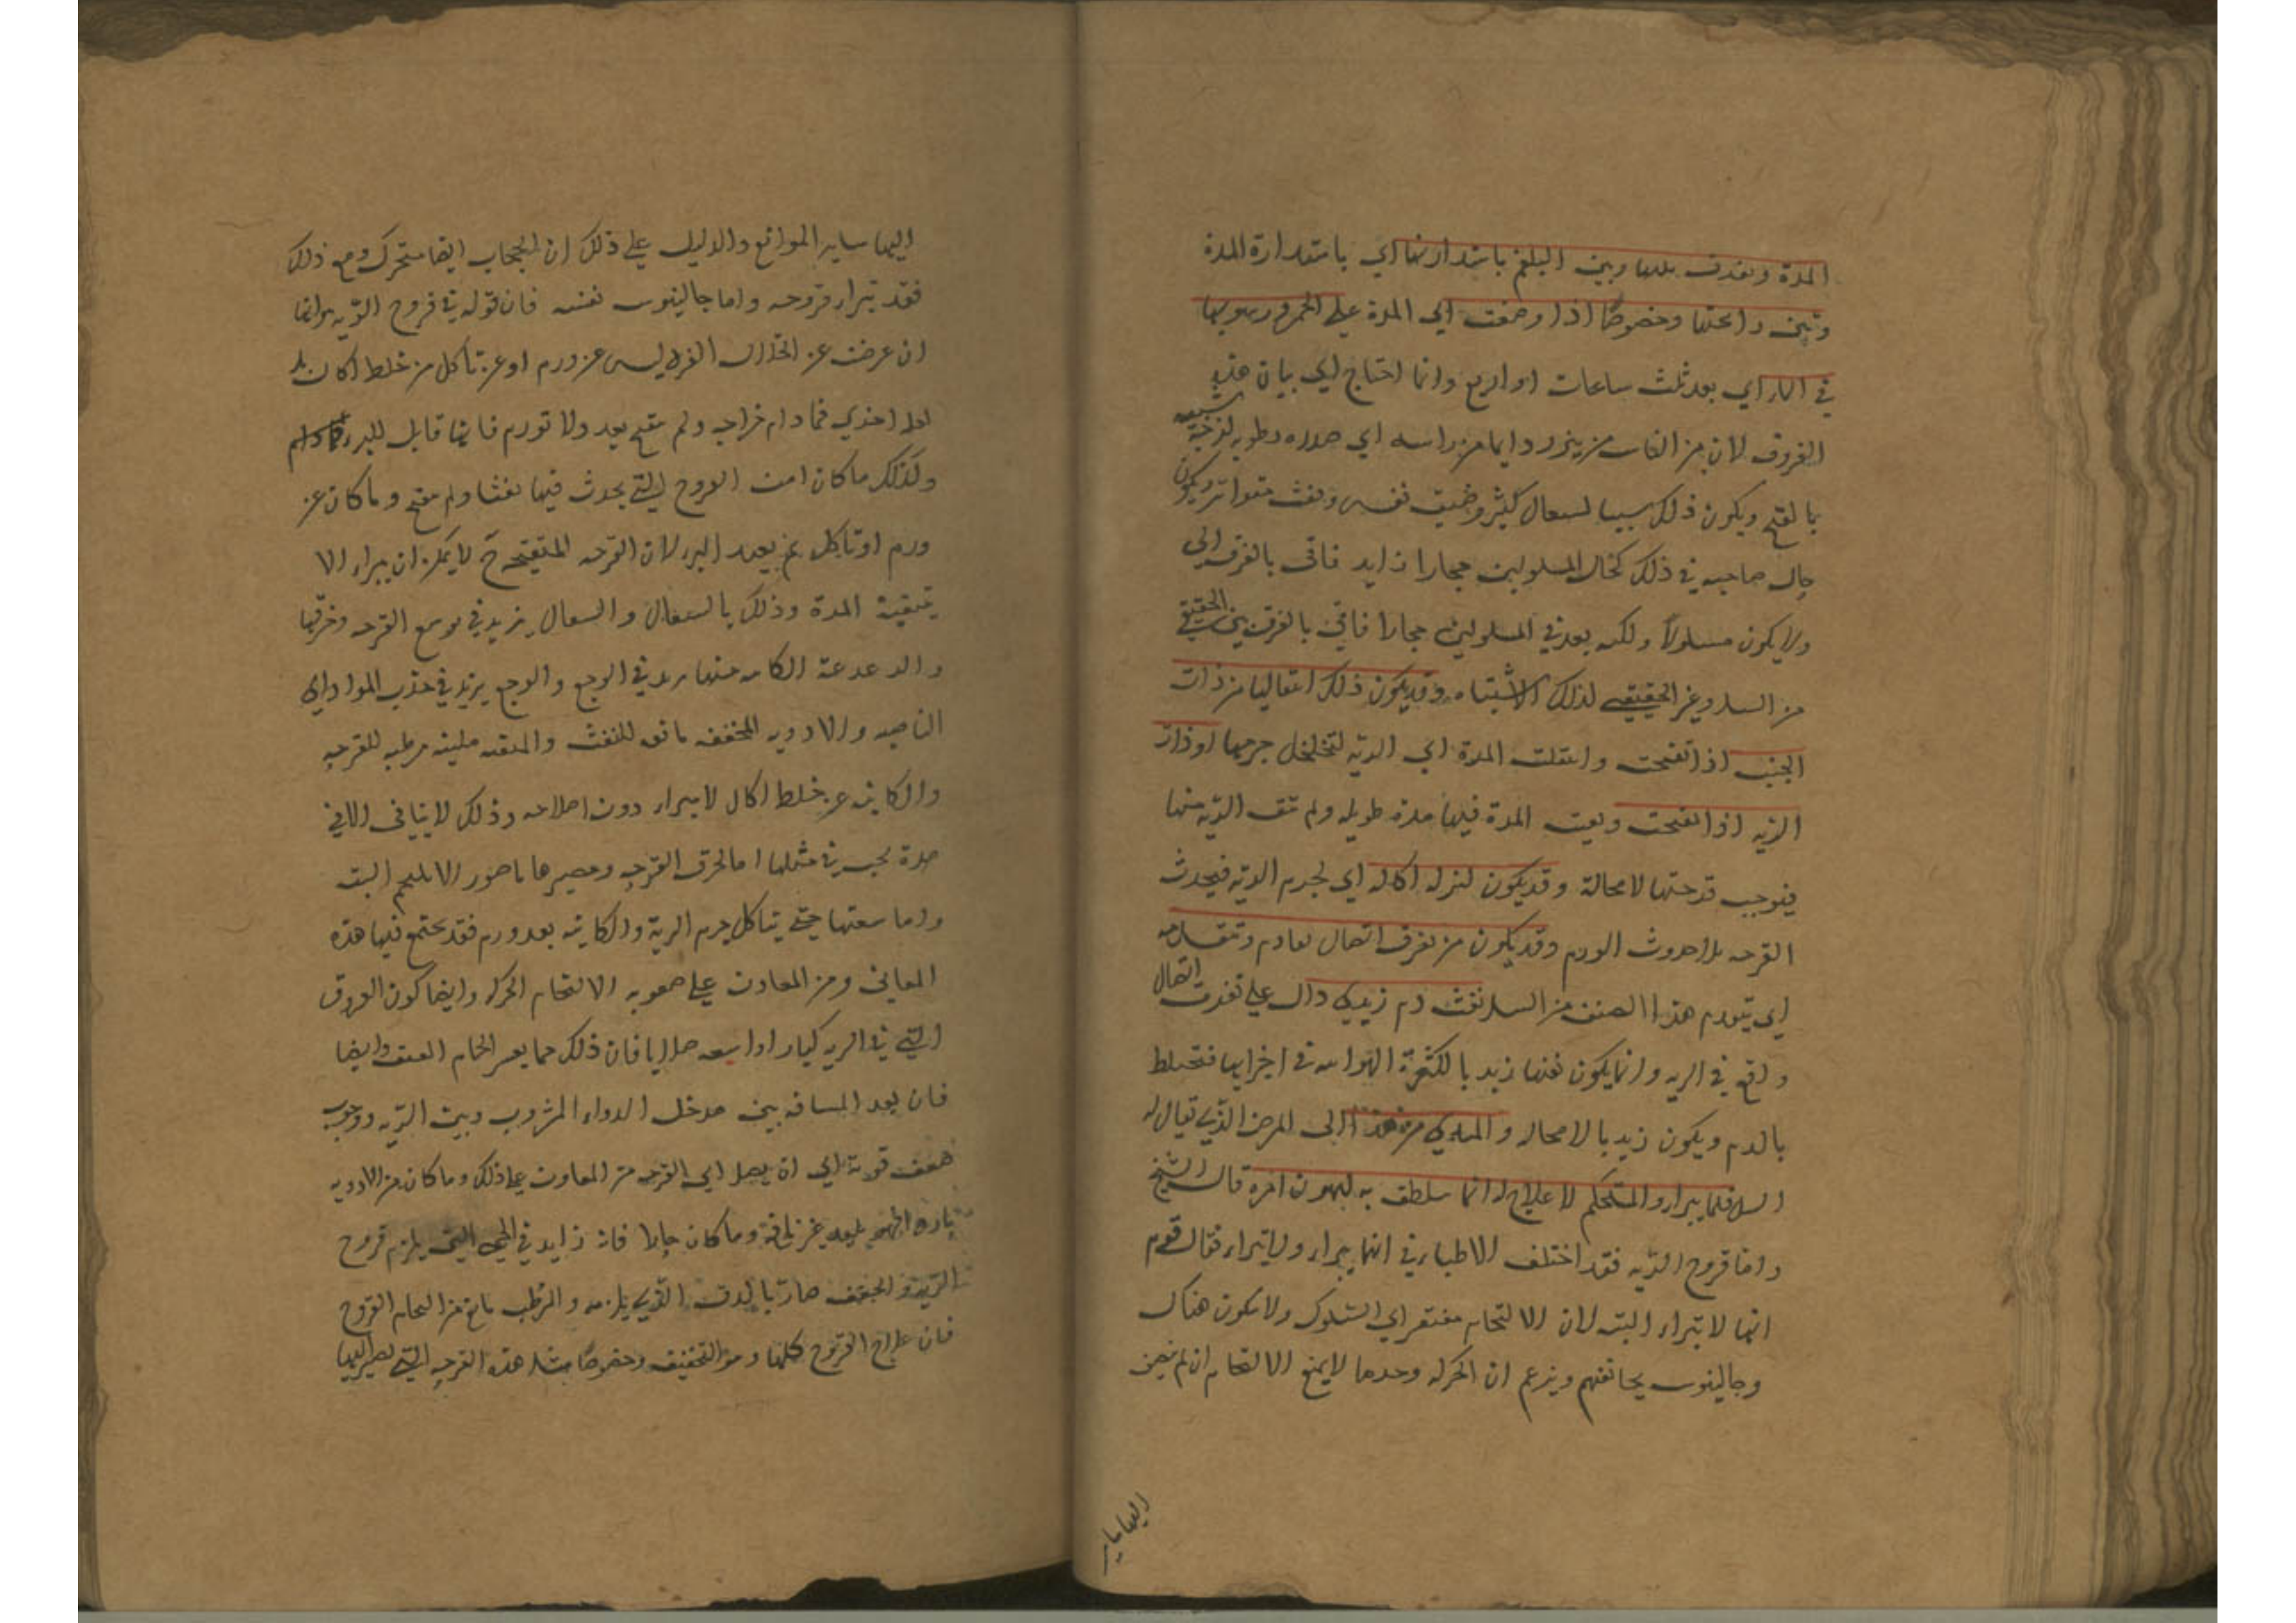 المدة ويفرق بينها وبين البلغم باستدارتها اي باستدارة المدة
وبين رائحتها وخصوصًا اذا وضعت اي المدة على الجمر ورسوبها
في الماء اي بعد ثلث ساعات او اربع وانما احتاج الي بيان هذه
الفروق لان من الناس من ينزل دايما من راسه اي صدره رطوبه لزجة شبيهه
بالقيح ويكون ذلك سببا لسعال كثير وضيق نفس ونفث متواتر ويكون
حال صاحبه في ذلك كحال المسلولين مجازا فاتى بالفرق الي
ولا يكون مسلولا ولكنه يعد في المسلولين مجازا فاتى بالفرق بين الحقيقي
من السل وغير الحقيقي لذلك الاشتباه وقد يكون ذلك انتقاليا من ذات
الجنب اذا تقيحت وانتقلت المدة الي الريه لتخلخل جرمها او ذات
الريه اذا تقيحت وبقيت المدة فيها مدة طويله ولم تنق الريه منها
فيوجب قرحتها لا محالة وقد يكون لنزله اكاله اي لجرم الريه فيحدث
القرحه بلا حدوث الورم وقد يكون من تفرق اتصال يعادم وتتقدمه
اي يتقدم هذا الصنف من السل نفث دم زبدي دال على تفرق اتصال
واقع في الريه وانما يكون نفثها زبديا لكثرة الهوائيه في اجزائها فتختلط
بالدم ويكون زبديا لا محاله والمبتدي من هذا الى المرض الذي يقال له
السل قلما يبراء والمستحكم لا علاج له انما يتلطف به ليهون امره قال الشيخ
واما قروح الريه فقد اختلف الاطباء في انها يبراء ولا تبراء فقال قوم
انها لا تبراء البته لان الالتحام مفتقر الي السكون ولا سكون هناك
وجالينوس يخالفهم ويزعم ان الحركه وحدها لا يمنع الالتحام ان لم ينضف
اليها ساير
اليها ساير الموانع والدليل على ذلك ان الحجاب ايضا متحرك ومع ذلك
فقد تبراء قروحه واما جالينوس نفسه فان قوله في قروح الريه هو انها
ان عرضت عن انحلال الفرد ليس عن ورم او عن تاكل من خلط اكال بل
فما دام جراحه ولم يتقيح بعد ولا تورم فانها قابل للبرء
وكذلك ما كان من القروح التي يحدث فيها نفثا ولم يتقيح وما كان عن
ورم او تاكل لم يبعد البرء لان القرحه المتقيحه لا يمكن ان يبراء الا
بتنقية المدة وذلك بالسعال والسعال يزيد في توسع القرحه وخرقها
والدعدعة الكائنه منها يزيد في الوجع والوجع يزيد في جذب المواد الي
الناحيه والادويه المجففه مانعه للنفث والمنقيه ملينه مرطبه للقرحه
والكاينه عن خلط اكال لا يبراء دون اصلاحه وذلك لا يتاتى الا في
مدة يجب في مثلها اما خرق القرحه ومصيرها ناصور الا يلتحم البته
واما سعتها حتى يتاكل جرم الرية والكاينه بعد ورم فقد يجتمع فيها هذه
المعاني ومن المعاون على صعوبه الالتحام الحركه وايضا كون العروق
التي في الريه كبارا واسعه صلابا فان ذلك مما يعسر التحام العنق وايضا
فان بعد المسافه بين مدخل الدواء المشروب وبين الريه ووجوب
ضعف قوته الي ان يصل الي القرحه من المعاون على ذلك وما كان من الادويه
باردا فهو بليد غير نافذ وما كان حارا فانه زايد في الحمى التي يلزم قروح
الريه والمجفف ضار بالدق الذي يلزمه والمرطب مانع من التحام القروح
فان علاج القروح كلها وهو التجفيف وخصوصًا مثل هذه القرحه التي يصير اليها